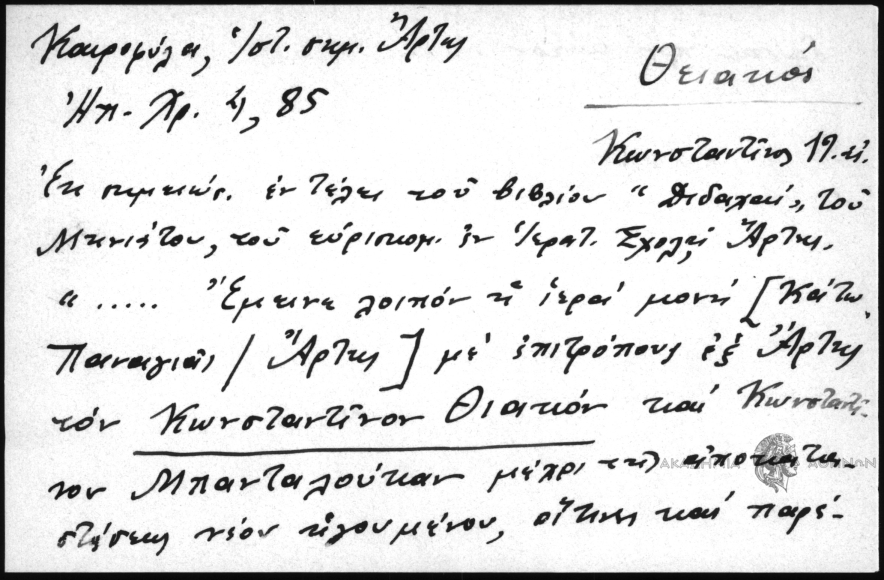 Καιρομύλα, Ἱστ. σημ. Ἄρτης
Θειακός
Ἠπ. Χρ. 4, 85
Κωνσταντῖνος 19. αἰ.
Ἐκ σημειώσ. ἐν τέλει τοῦ βιβλίου "Διδαχαί", τοῦ
Μηνιάτου, τοῦ εὑρισκομ. ἐν Ἱερατ. Σχολῇ Ἄρτης.
" ..... Ἔμεινε λοιπόν ἡ ἱερά μονή [Κάτω
Παναγιᾶς / Ἄρτης ] μέ ἐπιτρόπους ἐξ Ἄρτης
τόν Κωνσταντῖνον Θιακόν καί Κωνσταντῖ-
νον Μπανταλούκαν μέχρι τῆς ἀποκατα-
στάσεως νέου ἡγουμένου, οἵτινες καί παρέ-
ΑΚΑΔΗΜΙΑ ΑΘΗΝΩΝ